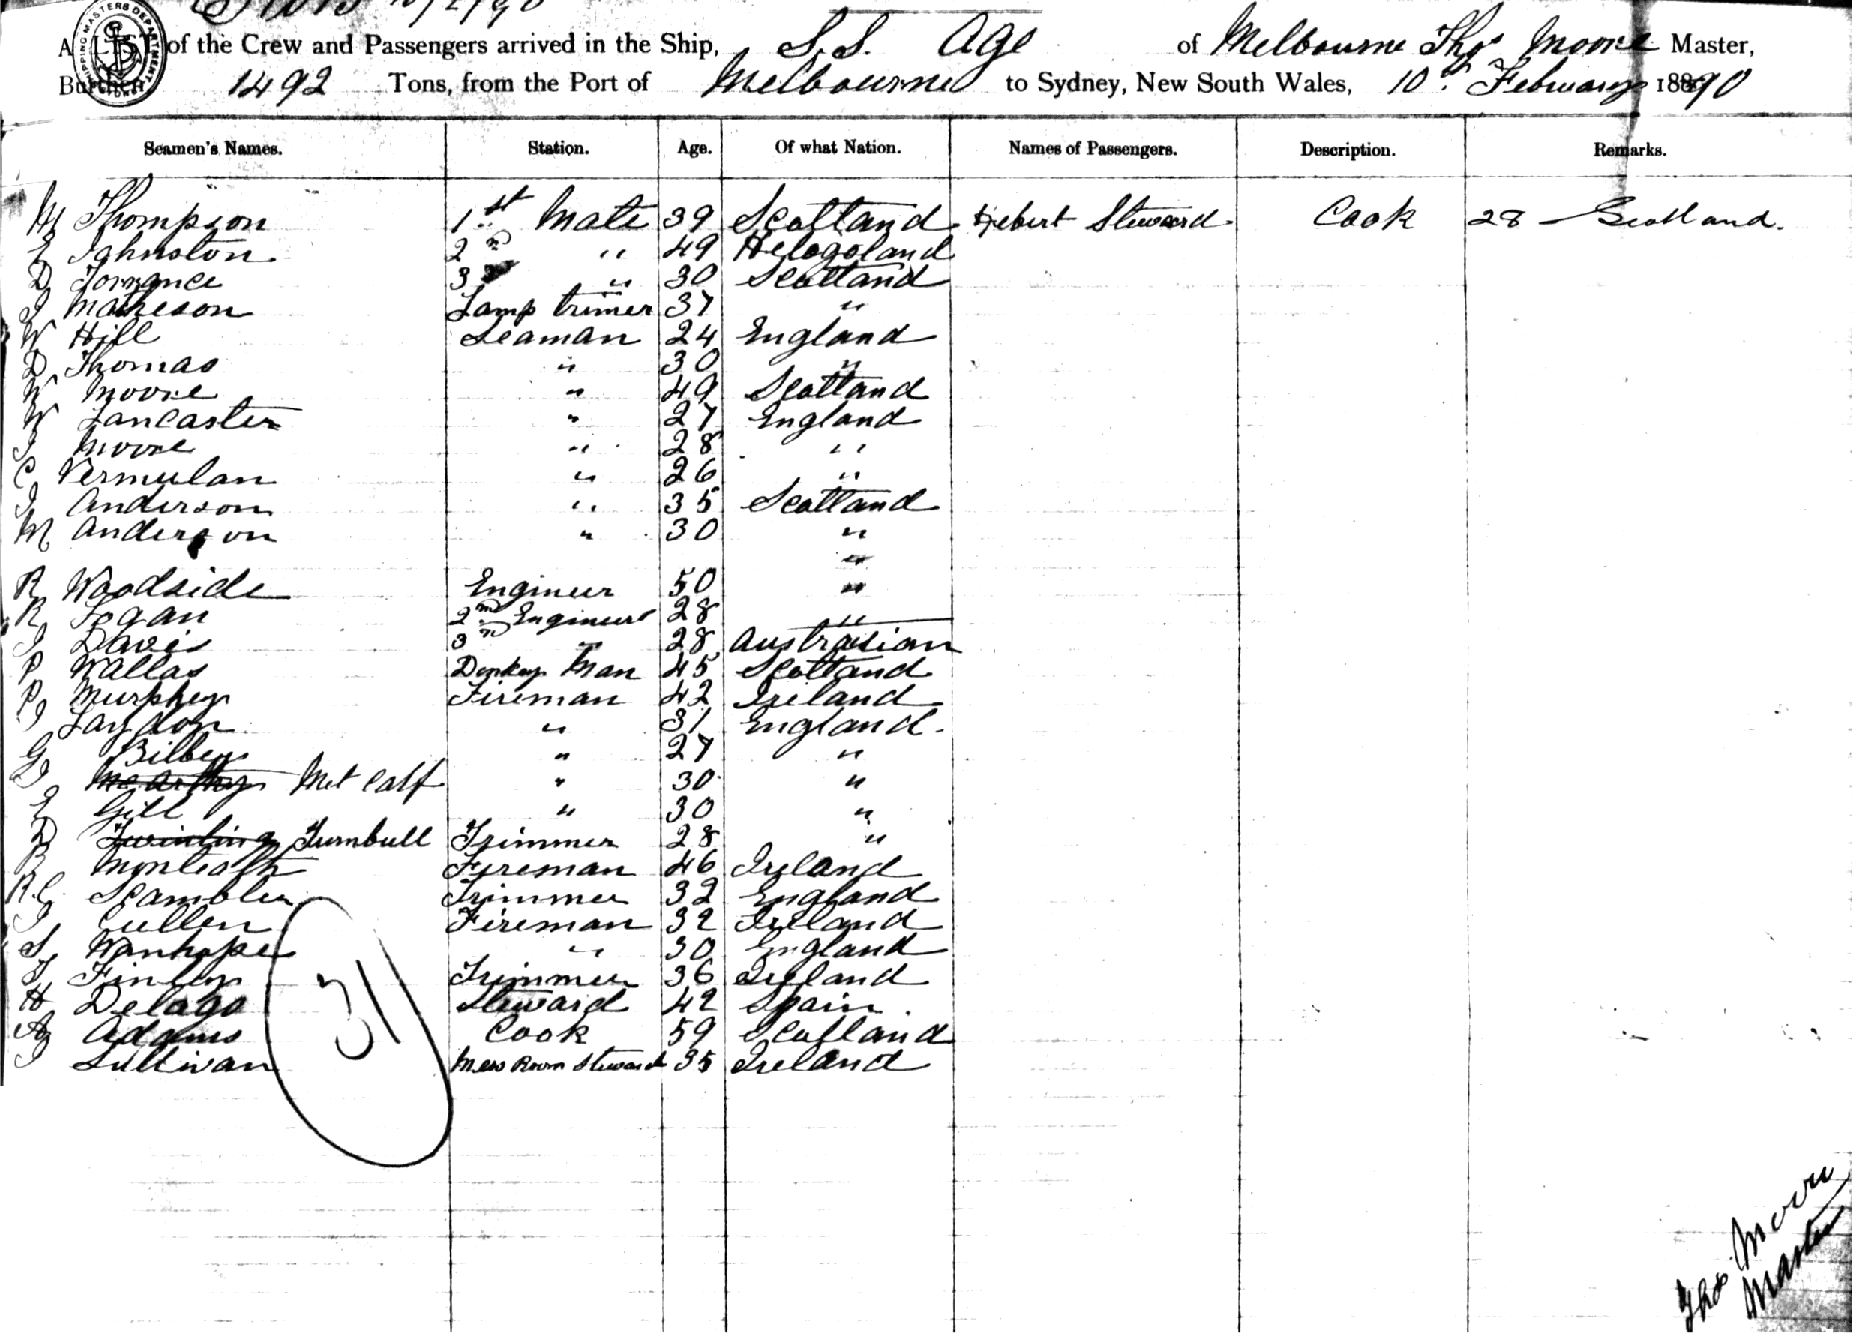 10/2/90
A LIST of the Crew and Passengers arrived in the Ship, S.S. Age of Melbourne Thos Moore Master,
Burthen 1492 Tons, from the Port of Melbourne to Sydney, New South Wales, 10th February 1890
Seamen's Names. Station. Age. Of what Nation. Names of Passengers. Description. Remarks.
M Thompson 1st Mate 39 Scotland Hebert Steward Cook 28 Scotland.
E Johnston 2nd " 49 Helogoland
D Torrance 3 " 30 Scotland
J Matheson Lamp trimer 37 "
W Hill Seaman 24 England
D Thomas " 30 "
W Moore " 49 Scotland
W Lancaster " 27 England
J Moore " 28 "
C Vermulan " 26 "
J Anderson " 35 Scotland
M Anderson " 30 "
"
R Woodside Engineer 50 "
R Logan 2nd Engineer 28 "
J Davis 3rd " 28 Australian
P Wallas Donkey Man 45 Scotland
P Murphey Fireman 42 Ireland
J Laydon " 31 England.
G Bilbey " 27 "
J McCarthy Met calf " 30 "
E Gill " 30 "
D Turnbull Trimmer 28 "
B Fireman 46 Ireland
R.C. Scambler Trimmer 32 England
J Cullen Fireman 32 Ireland
S Wanhope " 30 England
T Finley Trimmer 36 Ireland
H Delago Steward 42 Spain
A Adams Cook 59 Scotland
J Sullivan Mess Room Steward 35 Ireland
31
Thos Moore
Master